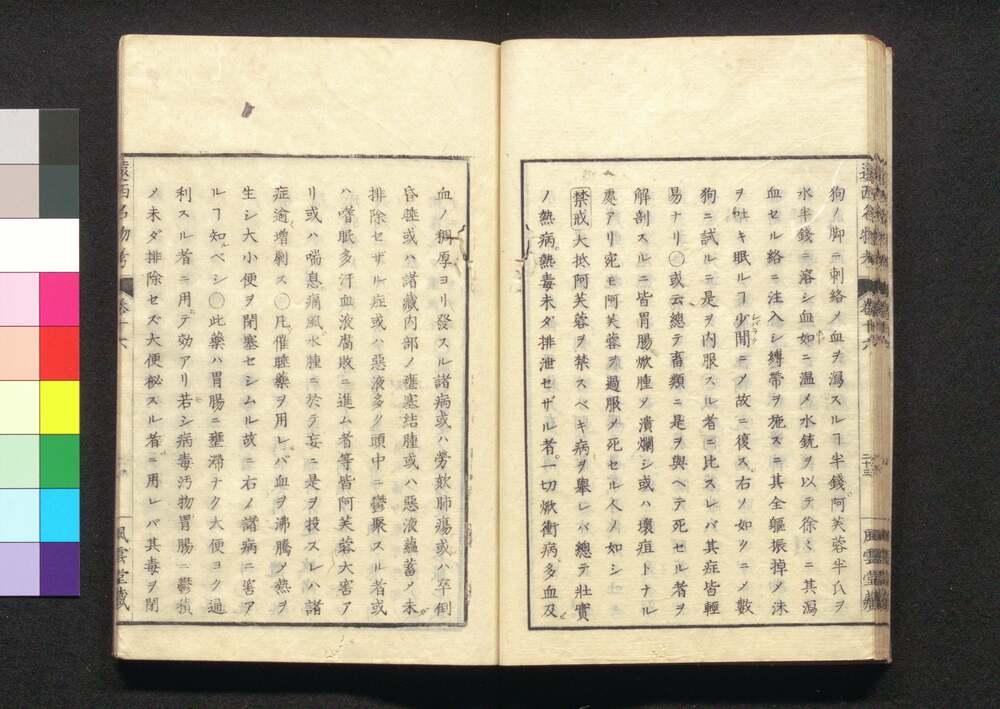 狗ノ脚ニ刺絡メ血ヲ瀉スルヿ半錢阿芙蓉半瓜ヲ
水半錢ニ溶シ血如ニ温メ水銃ヲ以テ徐々ニ其瀉
血セル絡ニ注入シ縛帶ヲ施スニ其全軀振掉メ沫
ヲ吐キ眠ルヿ少間ニメ故ニ復ス右ノ如クニメ數
狗ニ試ルニ是ヲ内服スル者ニ比スレバ其症皆輕
易ナリ○或云總テ畜類ニ是ヲ與ヘテ死セル者ヲ
解剖スルニ皆胃腸焮腫ヲ潰爛シ或ハ壞疽トナル
處アリ宛モ阿芙蓉ヲ過服メ死セル人ノ如シ
禁戒大抵阿芙蓉ヲ禁スベキ病ヲ擧レバ總テ壯實
ノ熱病熱毒未ダ排泄セザル者一切焮衝病多血及
遠西名物考
卷十六
二十三
風雲堂藏
血ノ稠厚ヨリ發スル諸病或ハ勞欬肺瘍或ハ卒倒
昏睡或ハ諸藏内部ノ壅塞結腫或ハ惡液蘊蓄ノ未
排除セザル症或ハ惡液多ク頭中ニ鬱聚スル者或
ハ嗜眠多汗血液腐敗ニ進ム者等皆阿芙蓉大害ア
リ或ハ喘息痛風水腫ニ於テ妄ニ是ヲ投スレハ諸
症逾増劇ス○凡催睡藥ヲ用レバ血ヲ沸騰メ熱ヲ
生シ大小便ヲ閉塞セシムル故ニ右ノ諸病ニ害ア
ルヿ知ベシ○此藥ハ胃腸ニ壅滯ナク大便ヨク通
利スル者ニ用テ効アリ若シ病毒汚物胃腸ニ鬱積
メ未ダ排除セズ大便秘スル者ニ用レバ其毒ヲ閉
遠西名物考
卷十六
風雲堂藏